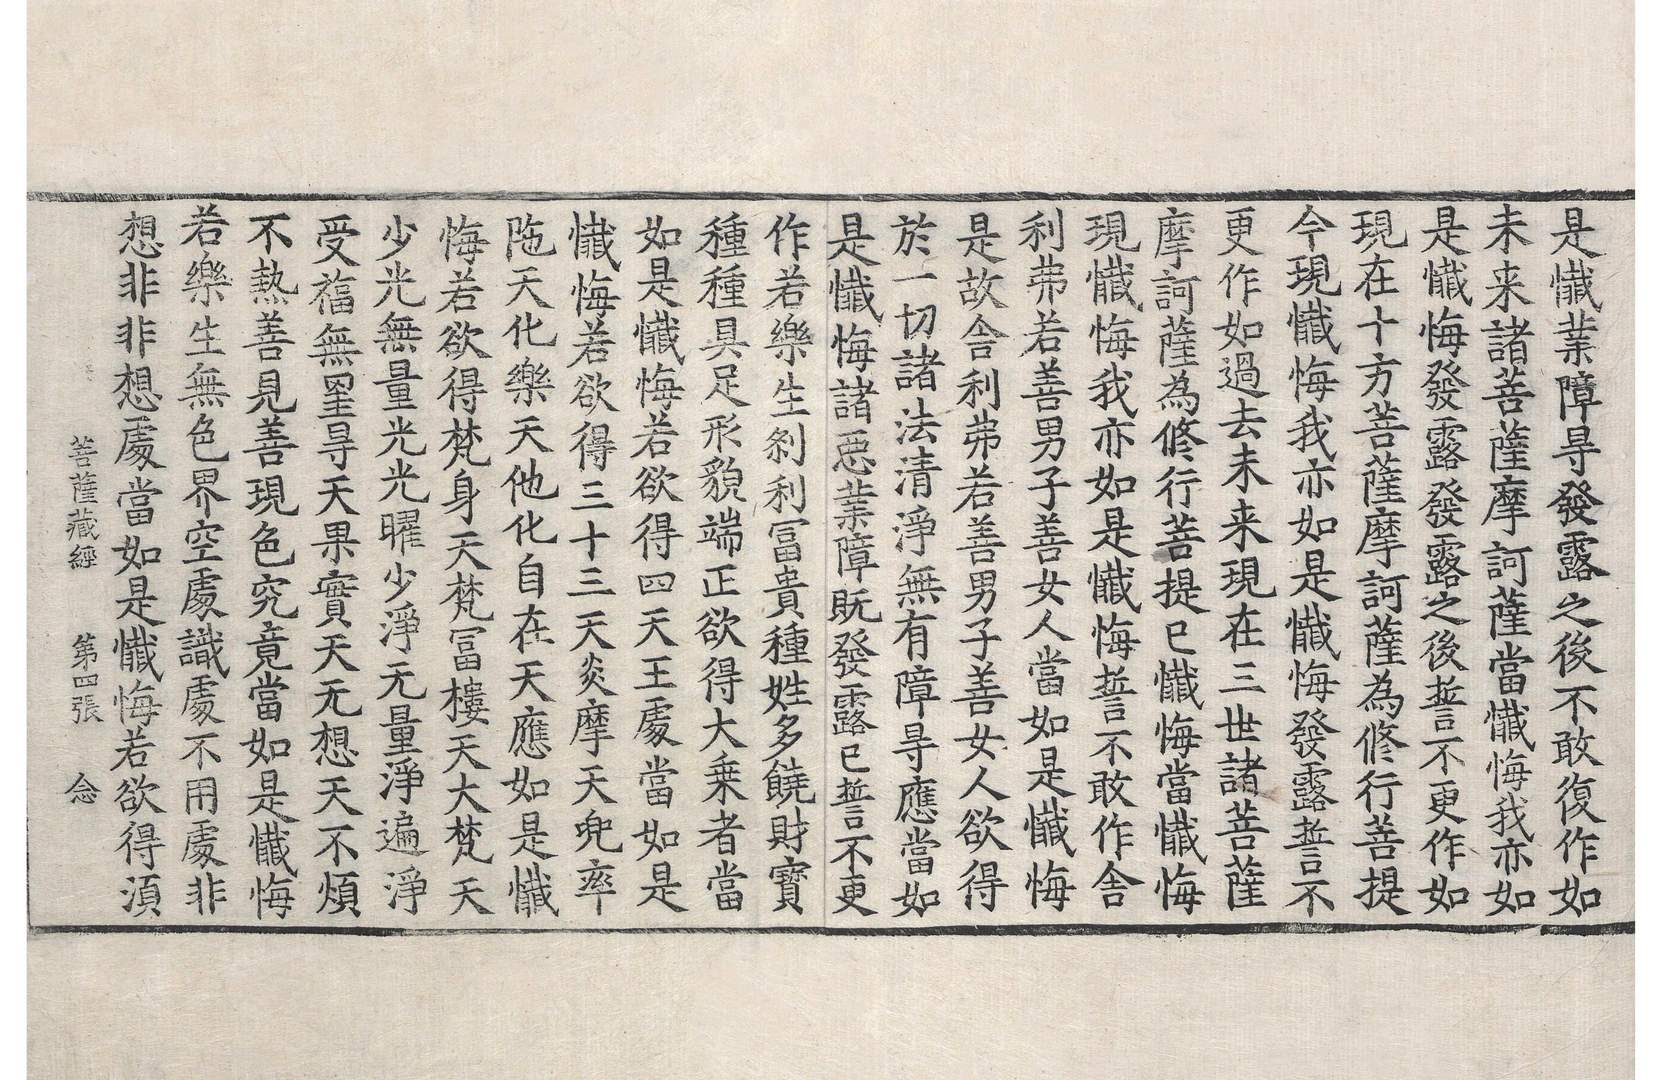 是懺業障㝵發露之後不敢復作如
未来諸菩薩摩訶薩當懺悔我亦如
是懺悔發露發露之後誓言不更作如
現在十方菩薩摩訶薩為修行菩提
今現懺悔我亦如是懺悔發露誓言不
更作如過去未来現在三世諸菩薩
摩訶薩為修行菩提已懺悔當懺悔
現懺悔我亦如是懺悔誓言不敢作舍
利弗若善男子善女人當如是懺悔
是故舎利弗若善男子善女人欲得
於一切諸法清淨無有障㝵應當如
是懺悔諸惡業障既發露已誓言不更
作若樂生刹利冨貴種姓多饒財寶
種種具足形貌端正欲得大乗者當
如是懺悔若欲得四天王處當如是
懺悔若欲得三十三天炎摩天兜率
陁天化樂天他化自在天應如是懺
悔若欲得梵身天梵冨樓天大梵天
少光無量光光曜少淨无量淨遍淨
受福無罣㝵天果實天无想天不煩
不熱善見善現色究竟當如是懺悔
若樂生無色界空處識處不用處非
想非非想處當如是懺悔若欲得湏
菩薩藏經 第四張 念